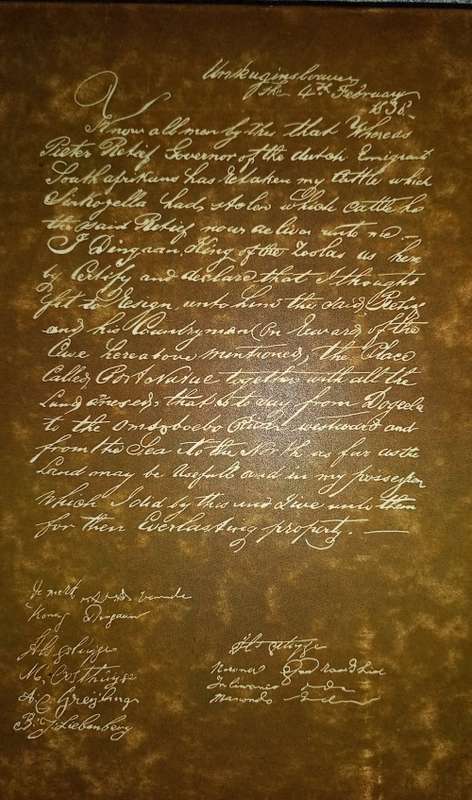 Umkuginsloave
the 4th February
1838
Know all man by this that Whereas
Pieter Retief Governor of the dutch Emigrant
South afrikans has Retaken my Cattle which
Sinkoyella had stolen which cattle he
the said Retief now deliver unto me.—
I Dingaan, King of the Zoolas as here
by Certify and declare that I thought
fit to Resign unto him the said Retief
and his Countryman (on Reward of the
Case hereabove mentioned) the Place
Called Port Natal together with all the
Land annexed, that is to say from Dogeela
to the Omsoboebo River westward and
from the Sea to the North as far as the
Land may be Usefull and in my possession
Which I did by this and Give unto them
for their Everlasting property.—
De merk
Koning Dingaan
M. Oosthuyse
A. C. Greyling
B. J. Liebenberg